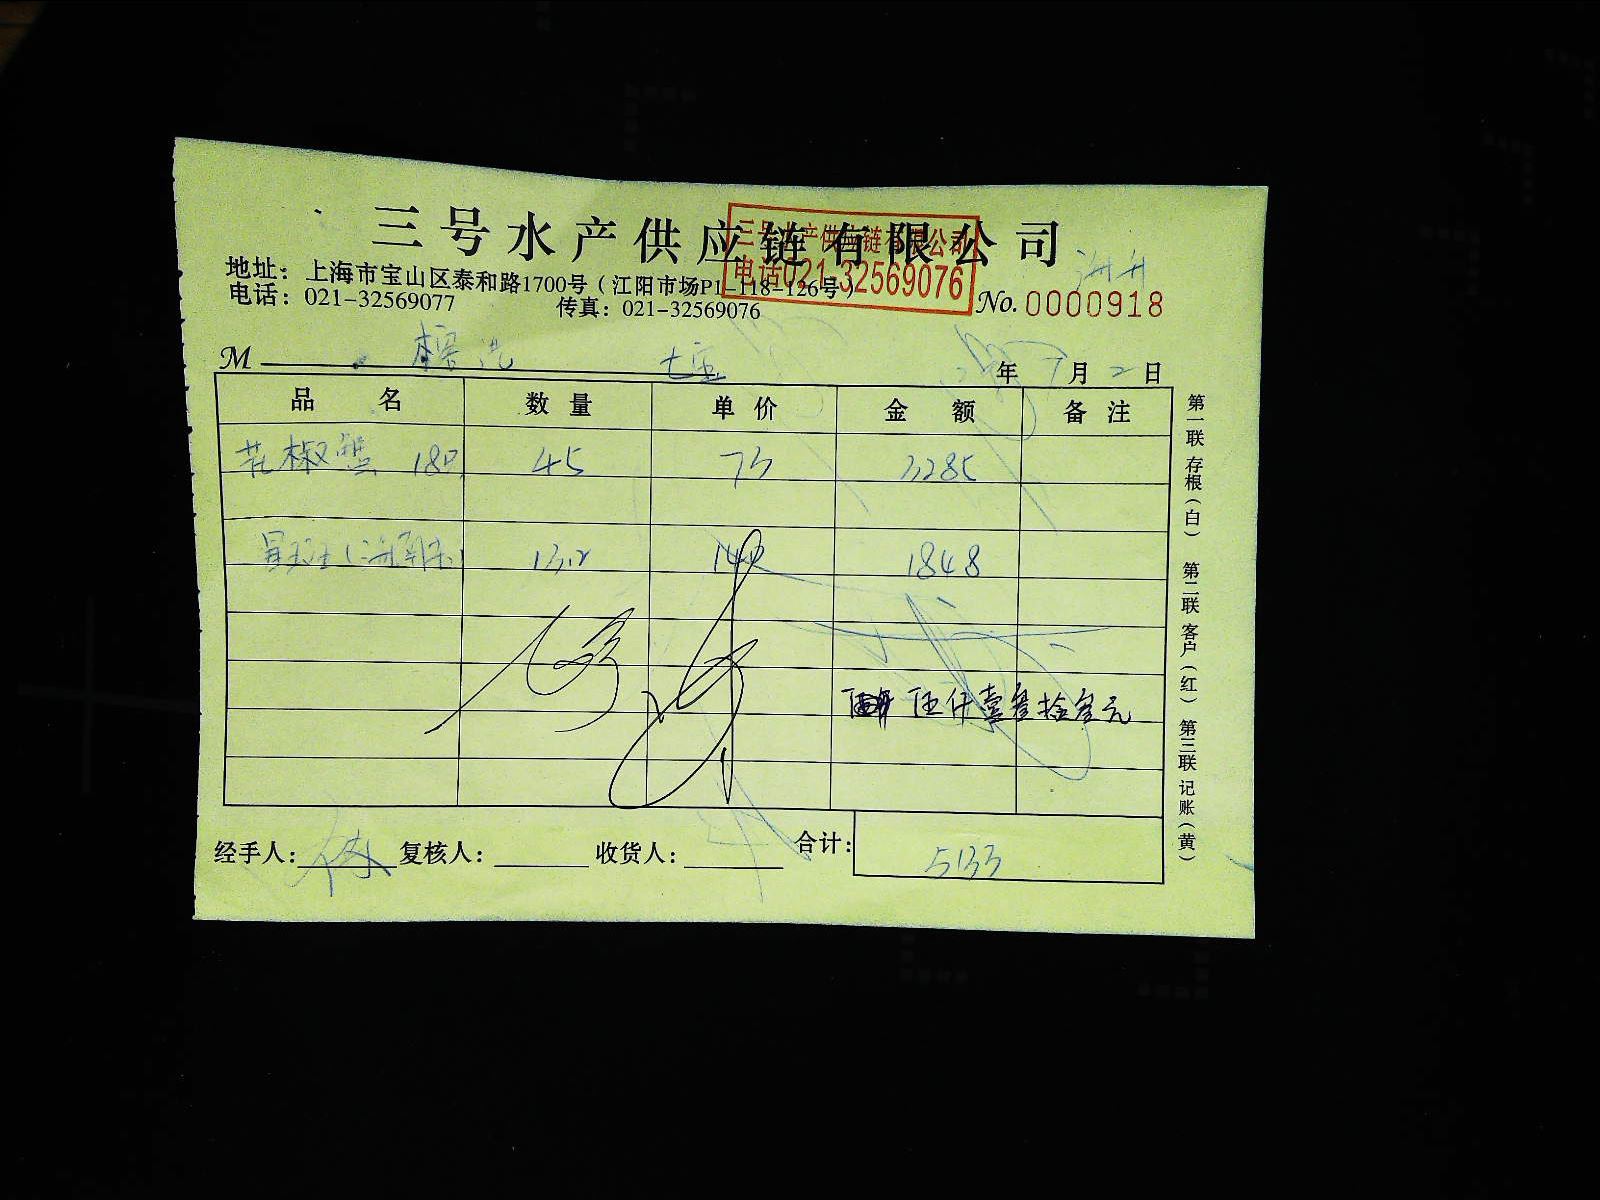 三号水产供应链有限公司
三号水产供应链有限公司
电话021-32569076
地址：上海市宝山区泰和路1700号（江阳市场P1-118-126号）
电话：021-32569077 传真：021-32569076
No. 0000918
M 七宝 年 7月2日
品名 数量 单价 金额 备注
花椒蟹 180 45 73 3285
星斑 13.2 140 1848
伍仟壹佰叁拾叁元
经手人： 复核人： 收货人： 合计： 5133
第一联 存根（白） 第二联 客户（红） 第三联 记账（黄）